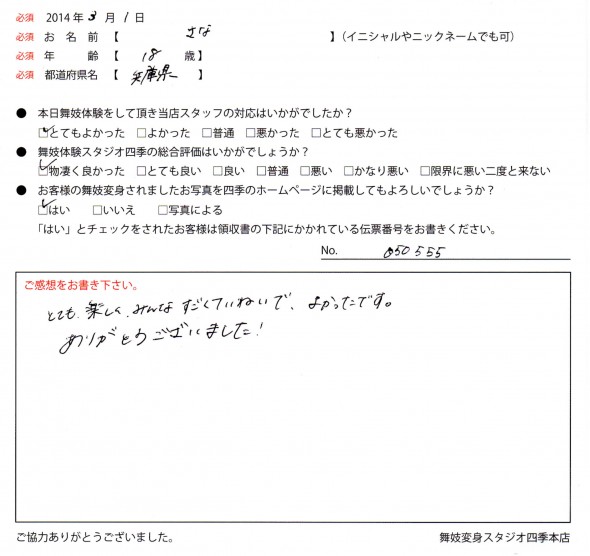 必須 2014年 3 月 1 日
必須 お 名 前 【 さな 】(イニシャルやニックネームでも可)
必須 年 齢 【 18 歳】
必須 都道府県名 【 兵庫県 】
● 本日舞妓体験をして頂き当店スタッフの対応はいかがでしたか?
☑とてもよかった □よかった □普通 □悪かった □とても悪かった
● 舞妓体験スタジオ四季の総合評価はいかがでしょうか?
☑物凄く良かった □とても良い □良い □普通 □悪い □かなり悪い □限界に悪い二度と来ない
● お客様の舞妓変身されましたお写真を四季のホームページに掲載してもよろしいでしょうか?
☑はい □いいえ □写真による
「はい」とチェックをされたお客様は領収書の下記にかかれている伝票番号をお書きください。
No. 050555
ご感想をお書き下さい。
とても、楽しく、みんな すごくていねいで、よかったです。
ありがとうございました!
ご協力ありがとうございました。 舞妓変身スタジオ四季本店